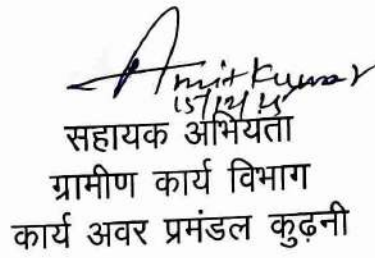 Amit Kumar
15/12/25
सहायक अभियंता
ग्रामीण कार्य विभाग
कार्य अवर प्रमंडल कुढ़नी